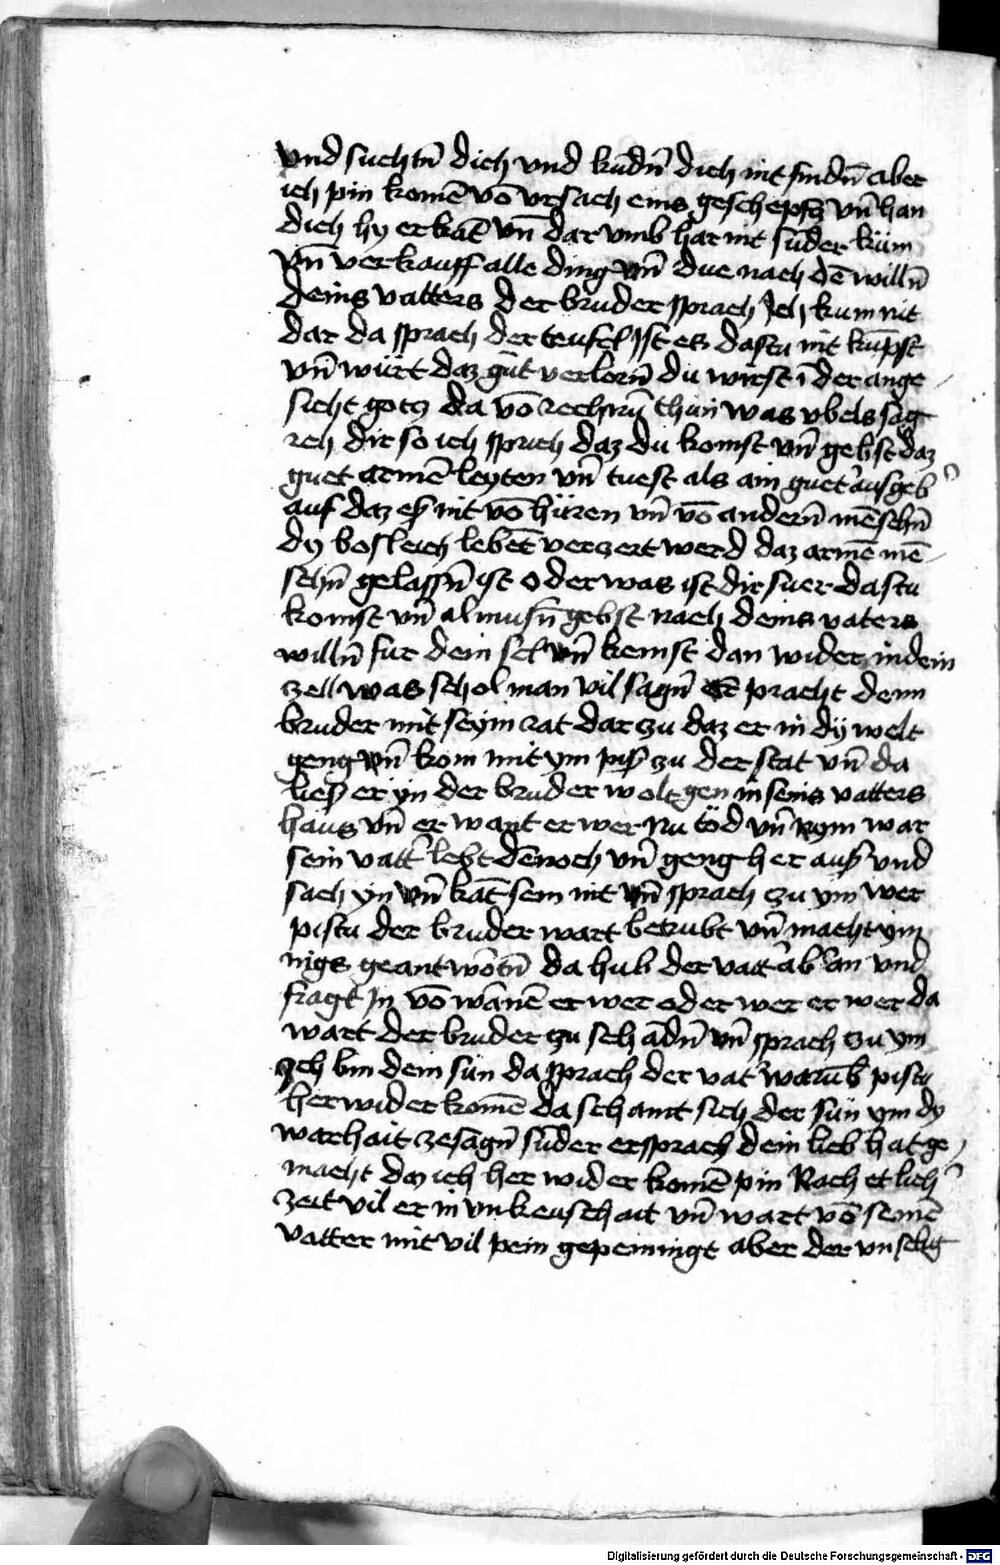 vnd suchtn̄ dich vnd kūdn̄ dich nit findn̄ aber
ich pin komē vō vrsach eins geschepfz vn̄ han
dich hy erkāt vn̄ dar vmb har nit sūder kūm
vn̄ verkauff alle ding vn̄ due nach dē willn̄
deins vatters der bruder sprach Ich kum nit
dar da sprach der teufel Ist es dastu nit kūpst
vn̄ wūrt daz gūt verlorn̄ du wirst ī der ange
sicht gotz da vō rechnūg thun was vbels sag
ich dir so ich sprich daz du komst vn̄ gebst daz
guet armē leyten vn̄ tuest als ain guet ausgeb
auf daz eß nit vō hūren vn̄ vō andern̄ mēschn̄
dy bosleich lebēt verzert werd daz armē mē
schn̄ gelassn̄ ist oder was ist dir suer dastu
komst vn̄ almusn̄ gebst nach deins vaters
willn̄ fur dein sel vn̄ kemst dan wider in dein
zell was schol man vil sagn̄ Er pracht denn
bruder mit seyin rat dar zu daz er in dÿ welt
geng vn̄ kom mit ym piß zu der stat vn̄ da
ließ er ÿn der bruder wolt gen in seins vatters
haus vn̄ er want er wer nu tōd vn̄ nym war
sein vatt lebt dēnoch vn̄ geng her auß vnd
sach ÿn vn̄ kāt sein nit vn̄ sprach zu ym wer
pistu der bruder wart betrubt vn̄ macht ym
nigs geantwōtn̄ da hub der vatt ab an vnd
fragt In vō wānē er wer oder wer er wer da
wart der bruder zu schādn̄ vn̄ sprach zu ym
Ich bin dein sun da sprach der vat warūb pistu
her wider komē da schamt sich der sūn ym dy
warhait zesagn̄ sūder er sprach dein lieb hat ge
macht daz ich her wider komē pin Nach etlich
zeit vil er in vnkeuschait vn̄ wart vō seinē
vatter mit vil pein gepeiningt aber der vnselig
Digitalisierung gefördert durch die Deutsche Forschungsgemeinschaft - DFG